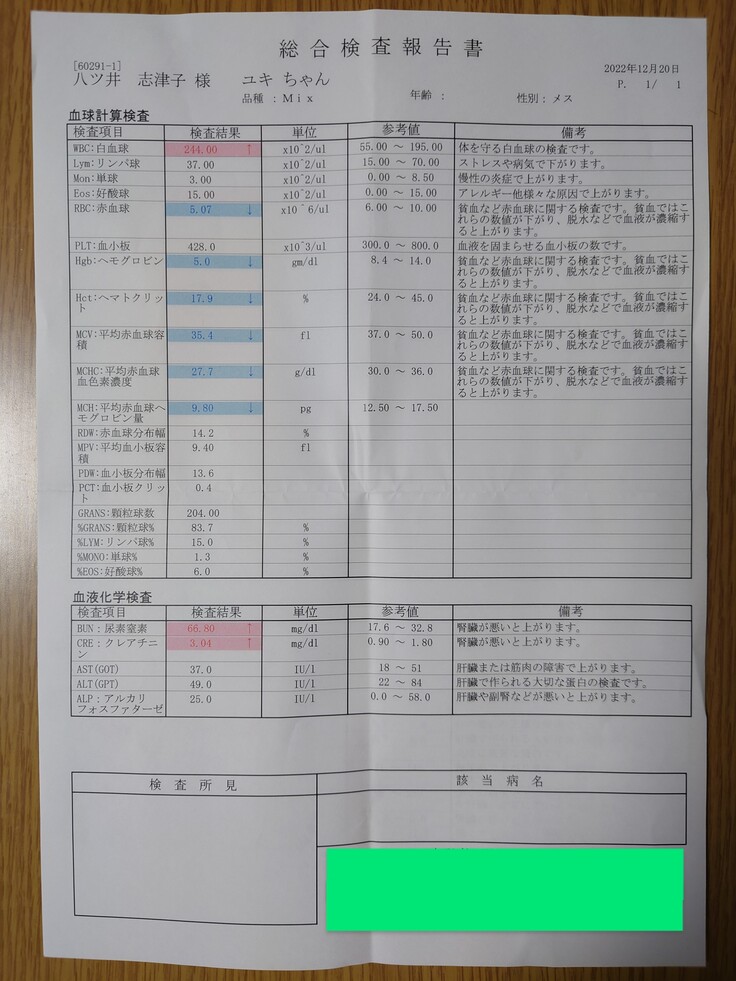 総合検査報告書
[60291-1]
2022年12月20日
八ツ井 志津子 様 ユキ ちゃん
P. 1/ 1
品種 : Mix 年齢 : 性別: メス
血球計算検査
検査項目 検査結果 単位 参考値 備考
WBC:白血球 244.00 ↑ x10^2/ul 55.00 ～ 195.00 体を守る白血球の検査です。
Lym:リンパ球 37.00 x10^2/ul 15.00 ～ 70.00 ストレスや病気で下がります。
Mon:単球 3.00 x10^2/ul 0.00 ～ 8.50 慢性の炎症で上がります。
Eos:好酸球 15.00 x10^2/ul 0.00 ～ 15.00 アレルギー他様々な原因で上がります。
RBC:赤血球 5.07 ↓ x10^6/ul 6.00 ～ 10.00 貧血など赤血球に関する検査です。貧血ではこ
れらの数値が下がり、脱水などで血液が濃縮す
ると上がります。
PLT:血小板 428.0 x10^3/ul 300.0 ～ 800.0 血液を固まらせる血小板の数です。
Hgb:ヘモグロビン 5.0 ↓ gm/dl 8.4 ～ 14.0 貧血など赤血球に関する検査です。貧血ではこ
れらの数値が下がり、脱水などで血液が濃縮す
ると上がります。
Hct:ヘマトクリッ 17.9 ↓ % 24.0 ～ 45.0 貧血など赤血球に関する検査です。貧血ではこ
ト れらの数値が下がり、脱水などで血液が濃縮す
ると上がります。
MCV:平均赤血球容 35.4 ↓ fl 37.0 ～ 50.0 貧血など赤血球に関する検査です。貧血ではこ
積 れらの数値が下がり、脱水などで血液が濃縮す
ると上がります。
MCHC:平均赤血球 27.7 ↓ g/dl 30.0 ～ 36.0 貧血など赤血球に関する検査です。貧血ではこ
血色素濃度 れらの数値が下がり、脱水などで血液が濃縮す
ると上がります。
MCH:平均赤血球ヘ 9.80 ↓ pg 12.50 ～ 17.50
モグロビン量
RDW:赤血球分布幅 14.2 %
MPV:平均血小板容 9.40 fl
積
PDW:血小板分布幅 13.6
PCT:血小板クリッ 0.4
ト
GRANS:顆粒球数 204.00
%GRANS:顆粒球% 83.7 %
%LYM:リンパ球% 15.0 %
%MONO:単球% 1.3 %
%EOS:好酸球% 6.0 %
血液化学検査
検査項目 検査結果 単位 参考値 備考
BUN:尿素窒素 66.80 ↑ mg/dl 17.6 ～ 32.8 腎臓が悪いと上がります。
CRE:クレアチニ 3.04 ↑ mg/dl 0.90 ～ 1.80 腎臓が悪いと上がります。
ン
AST(GOT) 37.0 IU/l 18 ～ 51 肝臓または筋肉の障害で上がります。
ALT(GPT) 49.0 IU/l 22 ～ 84 肝臓で作られる大切な蛋白の検査です。
ALP:アルカリ 25.0 IU/l 0.0 ～ 58.0 肝臓や副腎などが悪いと上がります。
フォスファターゼ
検査所見 該当病名